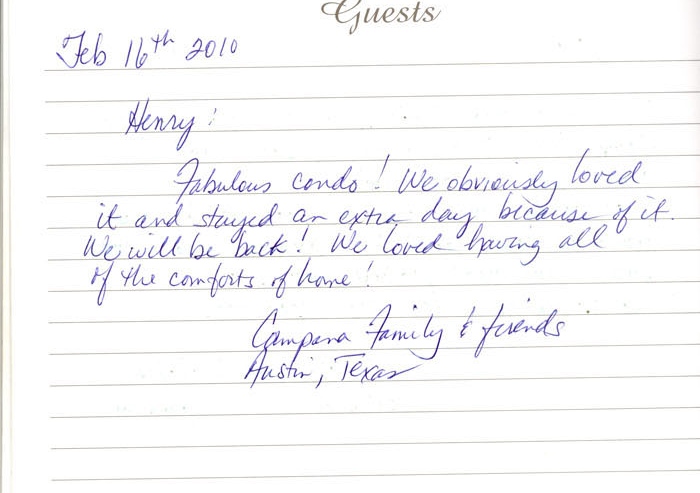 Guests
Feb 16th 2010
Henry:
Fabulous condo! We obviously loved
it and stayed an extra day because of it.
We will be back! We loved having all
of the comforts of home!
Campana Family & friends
Austin, Texas